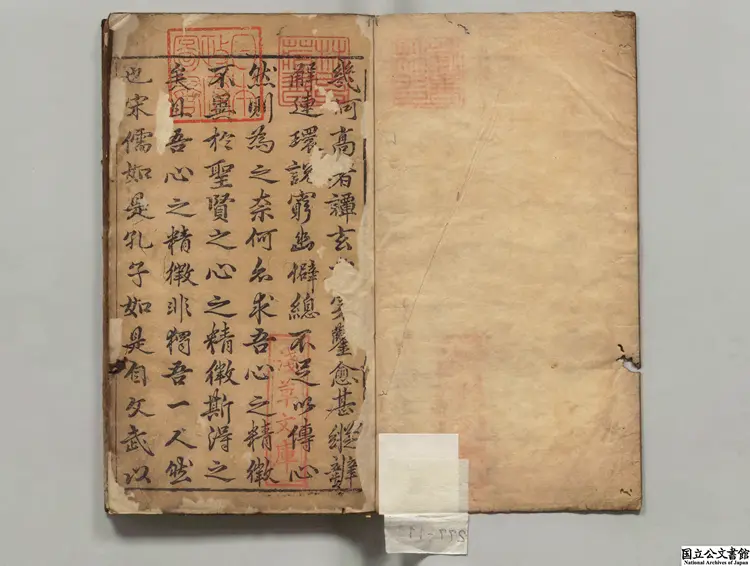 幾何高者譚玄愈甚縱辯
解連環說窮幽僻總不足以傳心
然則為之柰何亦求吾心之精微
不異於聖賢之心之精微斯得之
矣且吾心之精微非獨吾一人然
也宋儒如是孔子如是自文武以
淺草文庫
国立公文書館
National Archives of Japan